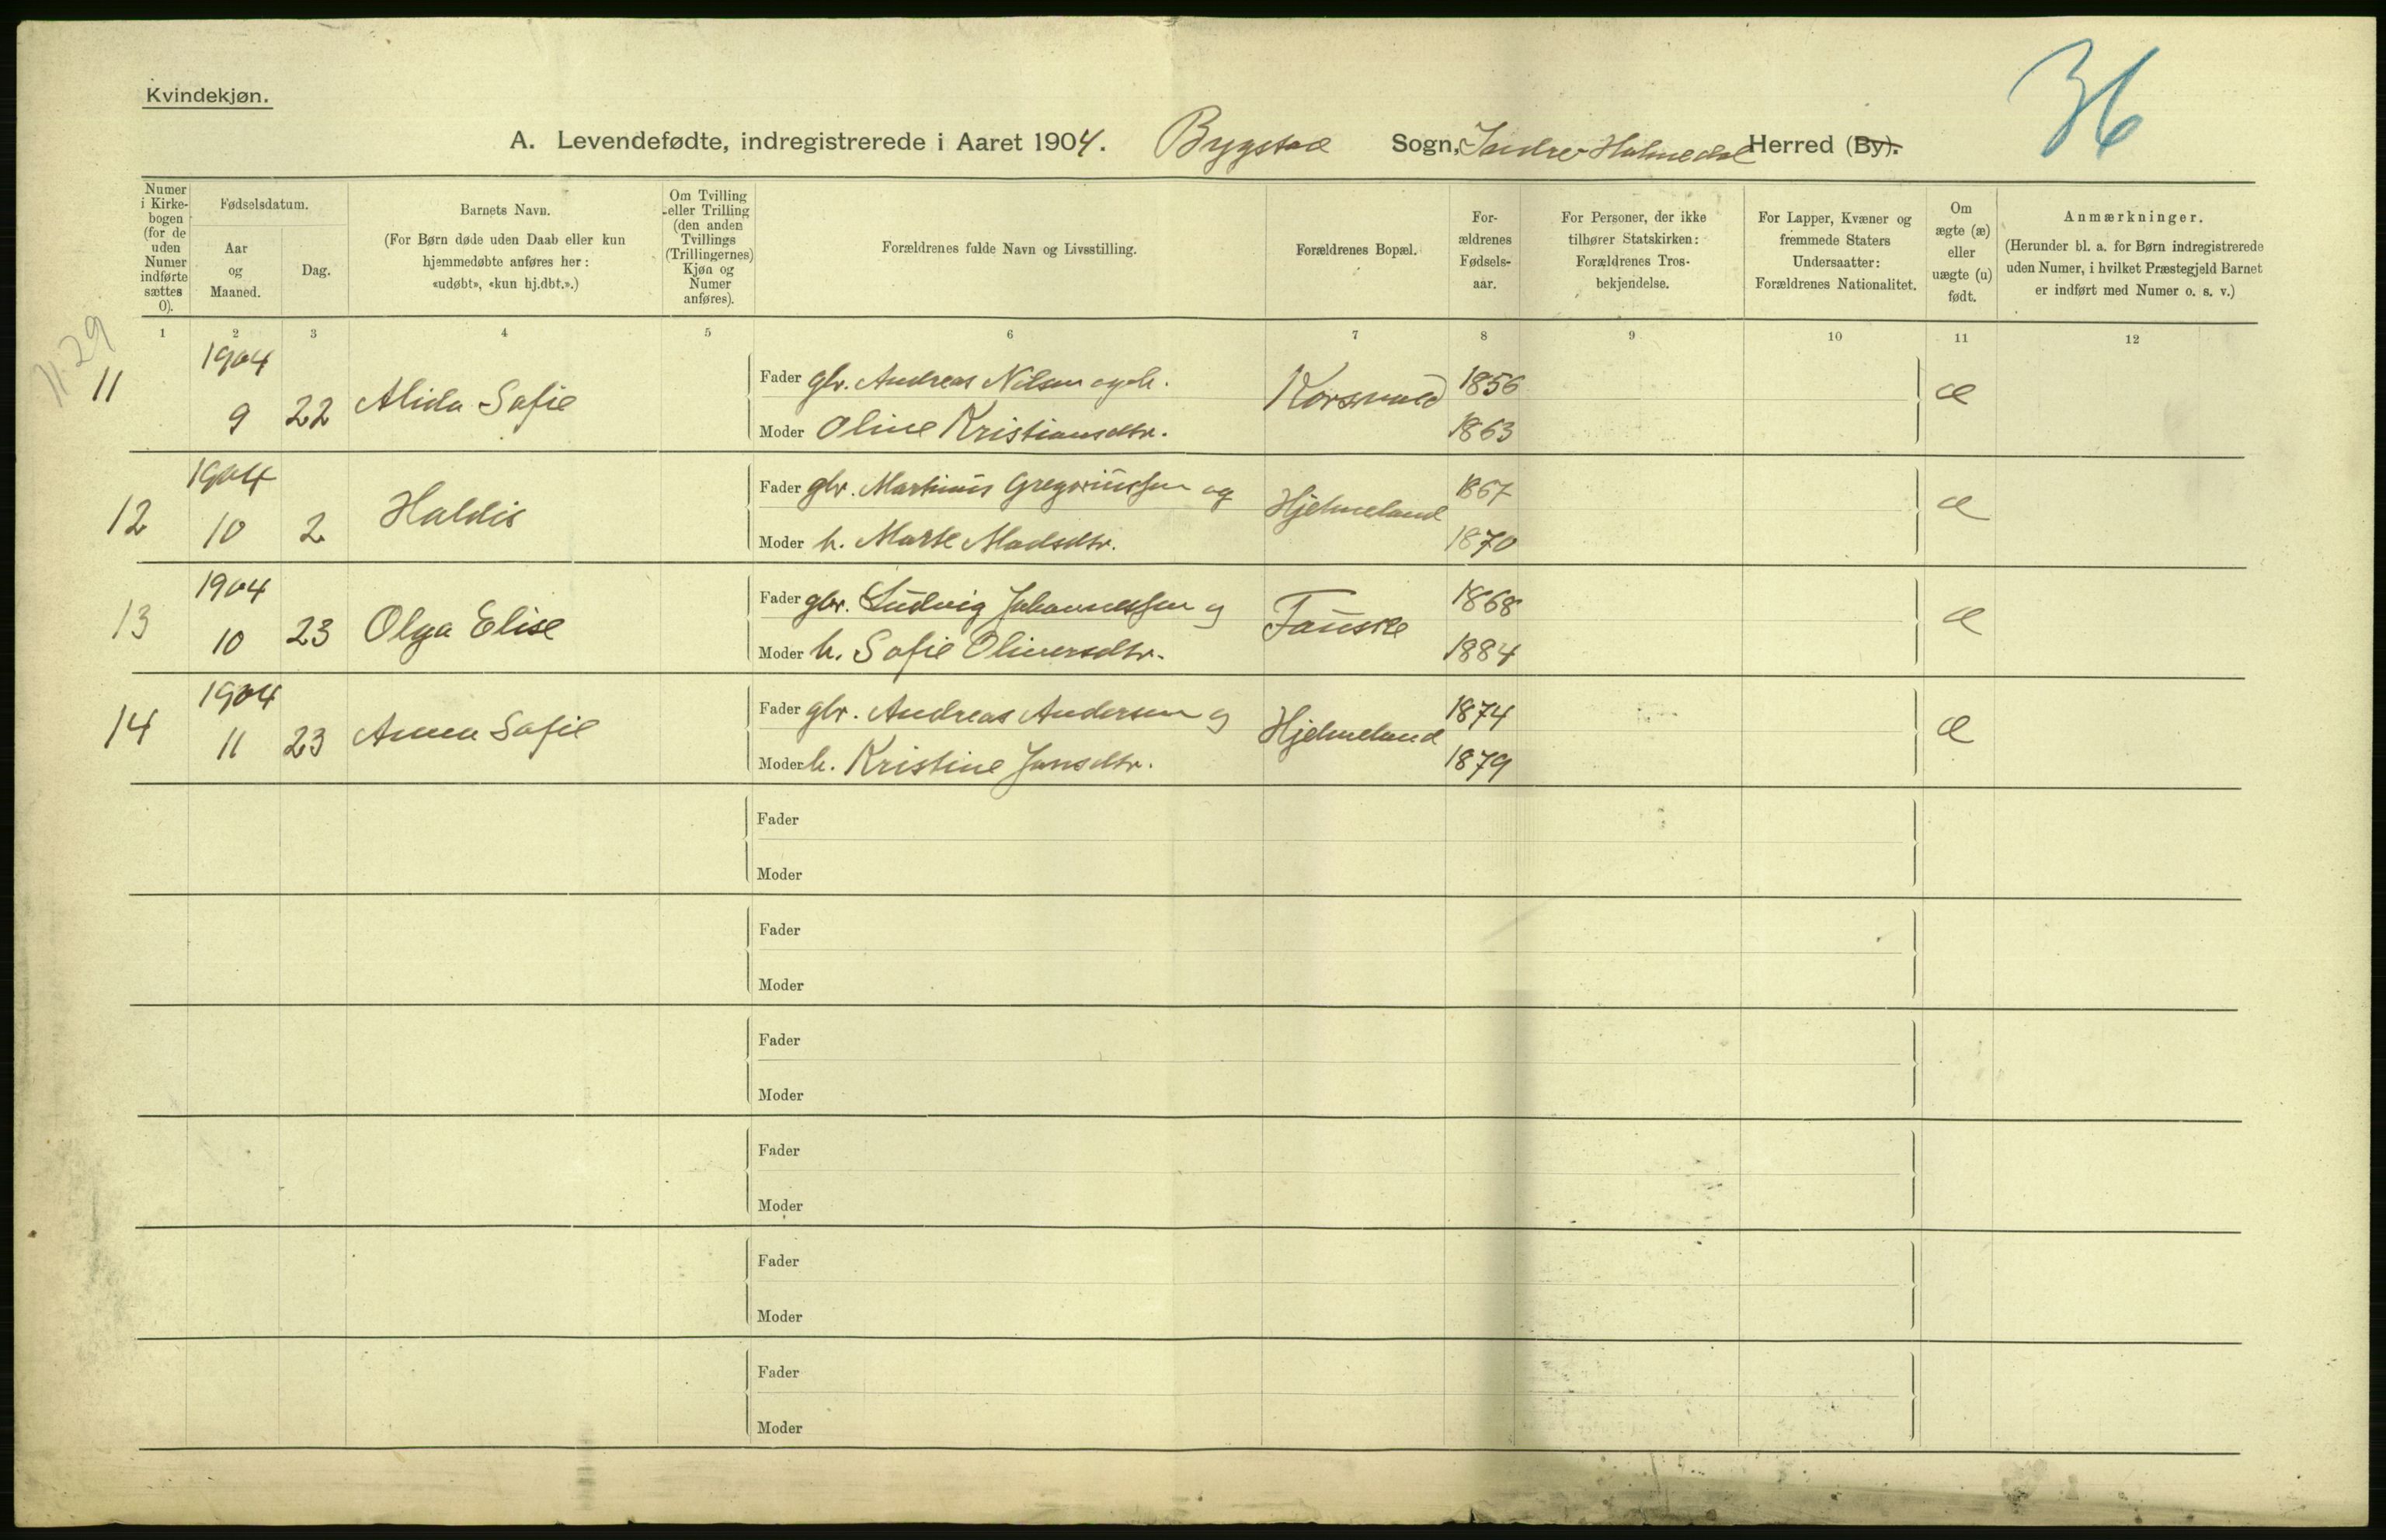 36
Kvindekjøn.
A. Levendefødte, indregistrerede i Aaret 1904. Bygstad Sogn, Indre Holmedal Herred (By).
Numer i Kirke-bogen (for de uden Numer indførte sættes 0).
Fødselsdatum.
Aar og Maaned.
Dag.
Barnets Navn.
(For Børn døde uden Daab eller kun hjemmedøbte anføres her: «udøbt», «kun hj.dbt.».)
Om Tvilling eller Trilling (den anden Tvillings (Trillingernes) Kjøn og Numer anføres).
Forældrenes fulde Navn og Livsstilling.
Forældrenes Bopæl.
For-ældrenes Fødsels-aar.
For Personer, der ikke tilhører Statskirken: Forældrenes Tros-bekjendelse.
For Lapper, Kvæner og fremmede Staters Undersaatter: Forældrenes Nationalitet.
Om ægte (æ) eller uægte (u) født.
Anmærkninger.
(Herunder bl. a. for Børn indregistrerede uden Numer, i hvilket Præstegjeld Barnet er indført med Numer o. s. v.)
1 2 3 4 5 6 7 8 9 10 11 12
1129
11 1904 9 22 Alida Sofie
Fader gbr. Andreas Nilsen og h. Korsvold 1856 æ
Moder Oline Kristiansdtr. 1863
12 1904 10 2 Haldis
Fader gbr. Martinus Gregoriussen og Hjelmeland 1867 æ
Moder h. Marte Madsdtr. 1870
13 1904 10 23 Olga Elise
Fader gbr. Ludvig Johannessen og Fauske 1868 æ
Moder h. Sofie Oliversdtr. 1884
14 1904 11 23 Anna Sofie
Fader gbr. Andreas Andersen og Hjelmeland 1874 æ
Moder h. Kristine Jansdtr. 1879
Fader
Moder
Fader
Moder
Fader
Moder
Fader
Moder
Fader
Moder
Fader
Moder